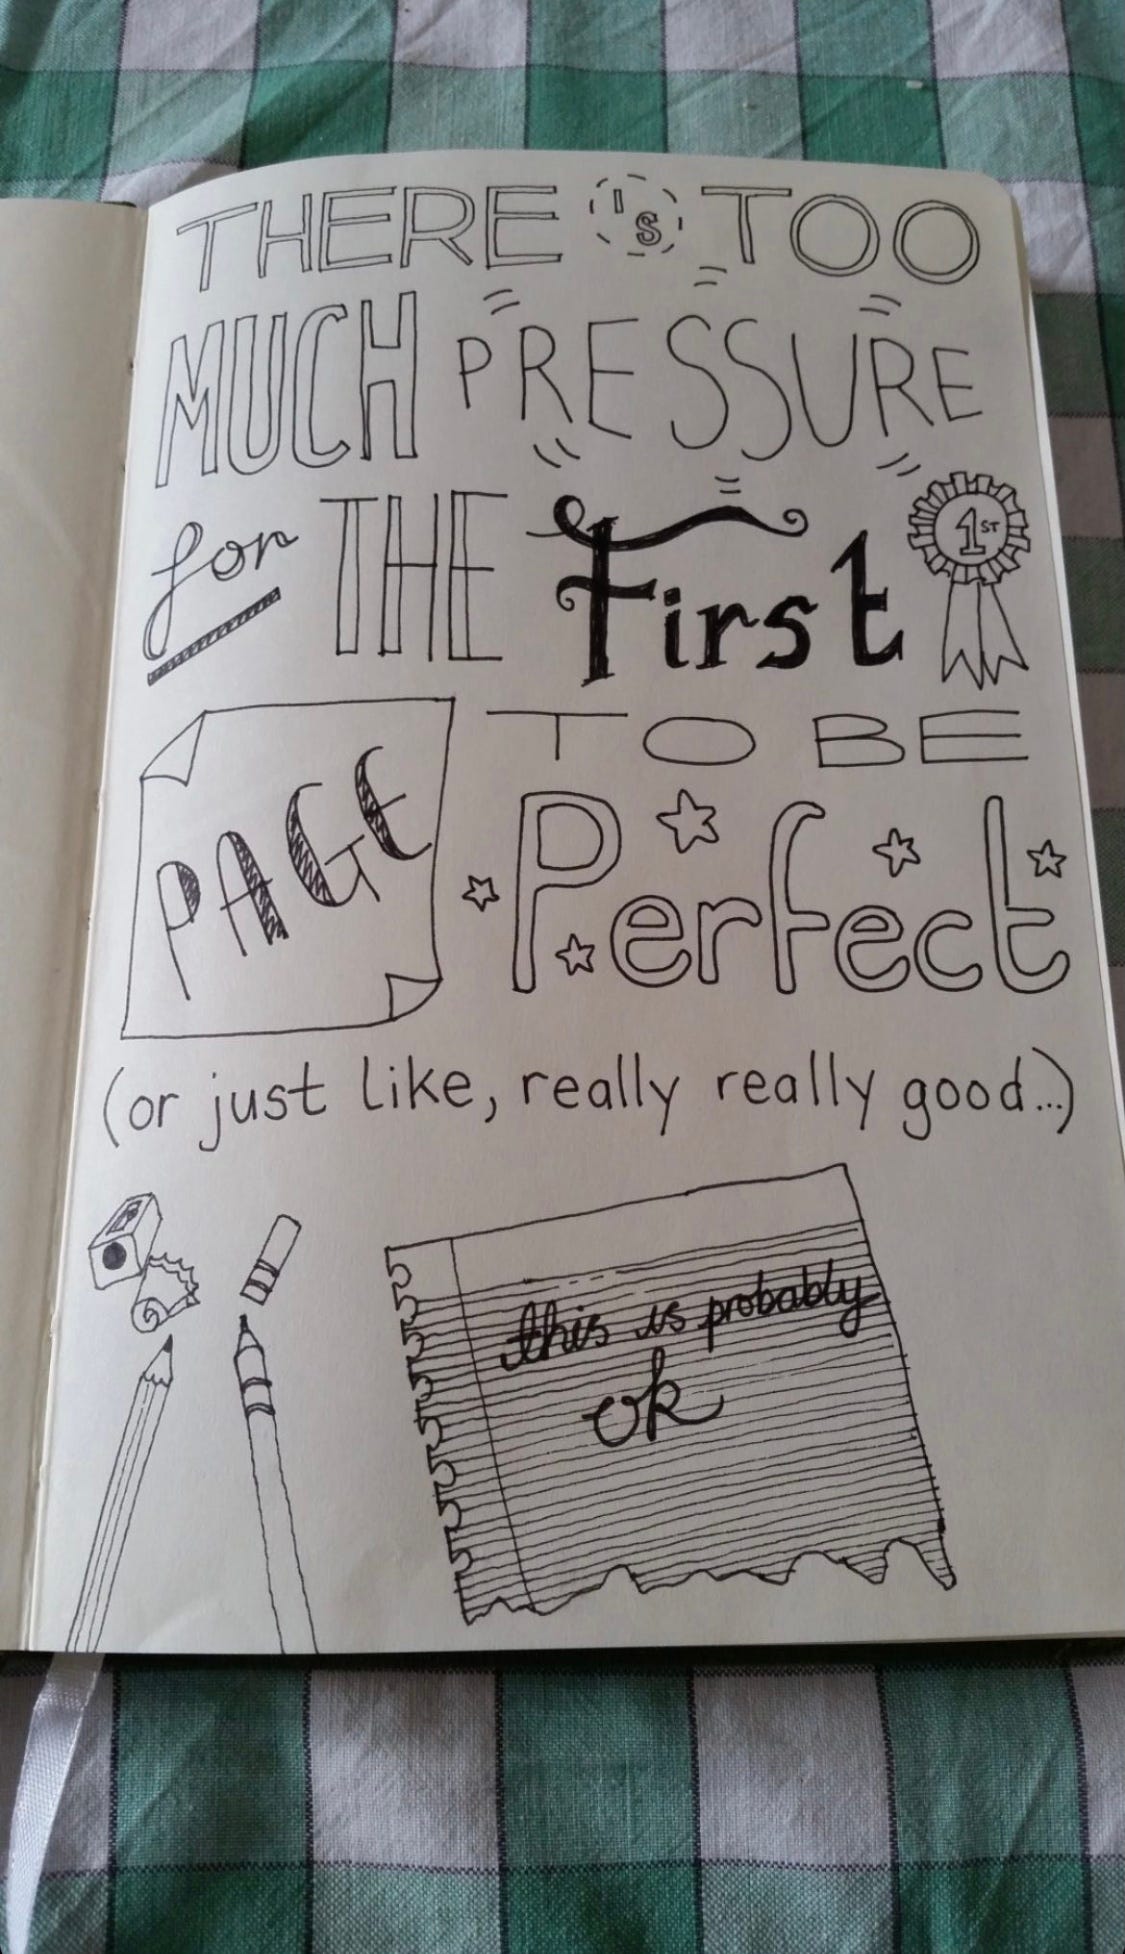 THERE'S TOO
MUCH PRESSURE
for THE First 1ST
PAGE TO BE
Perfect
(or just like, really really good...)
this is probably
ok